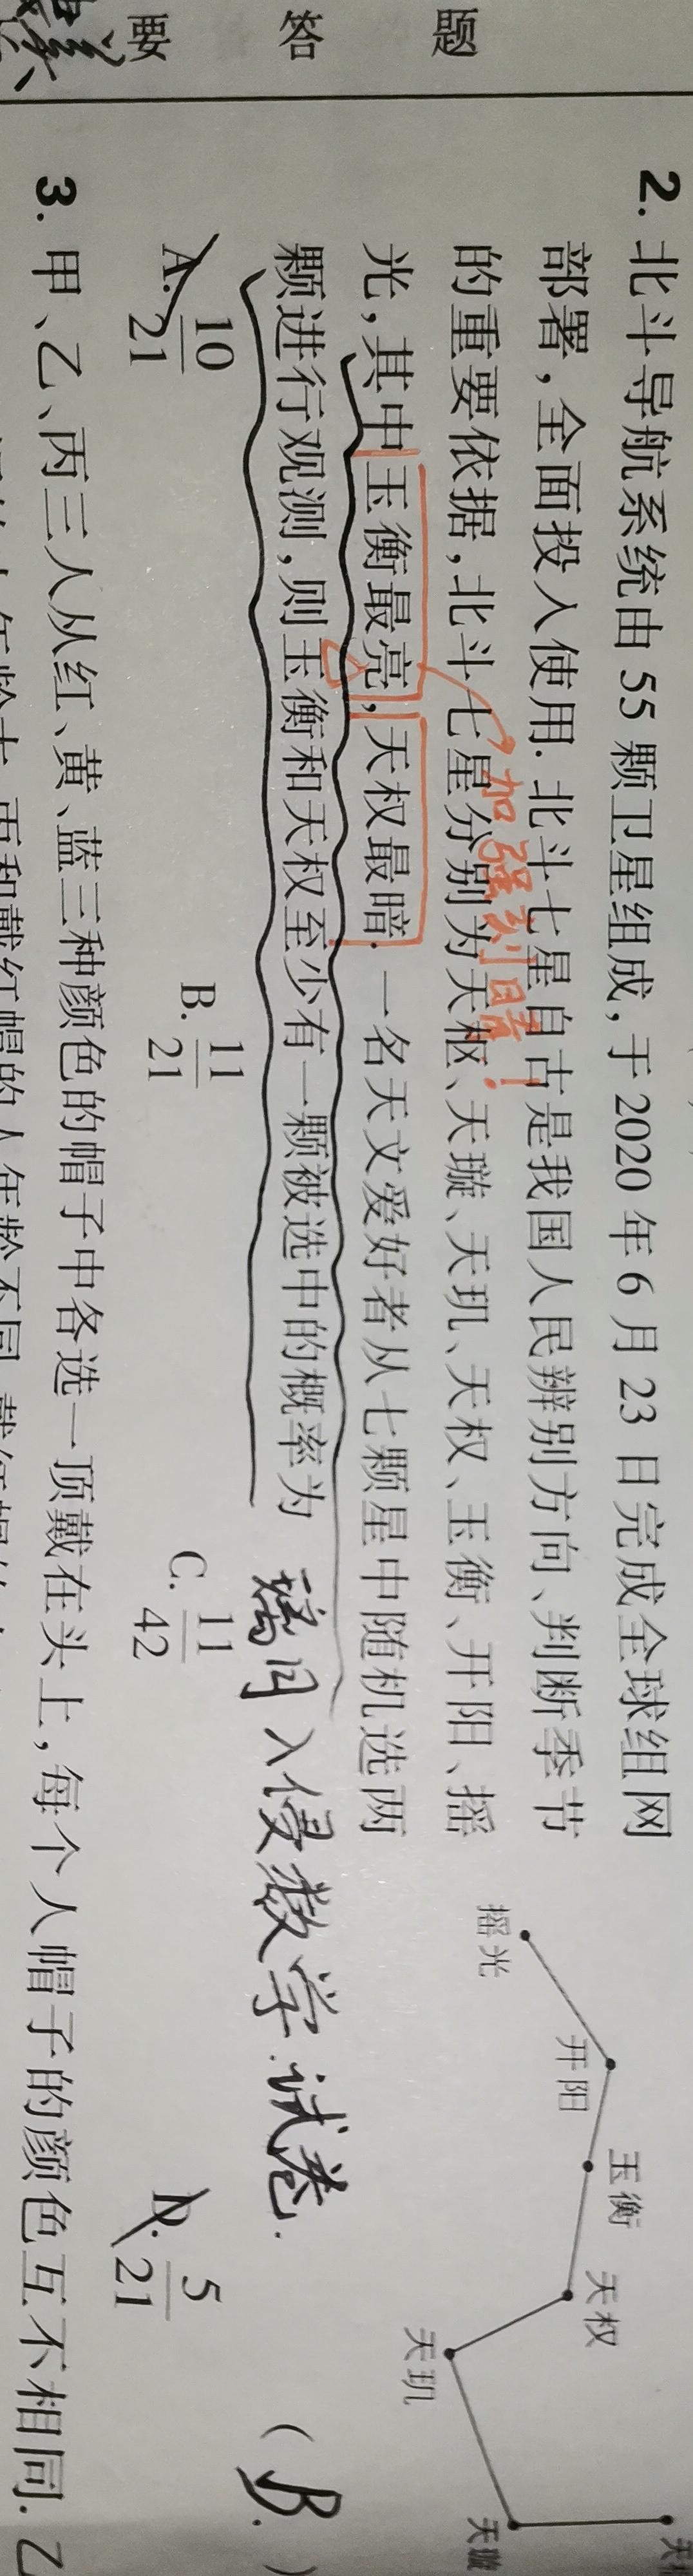 答
题
要
2. 北斗导航系统由 55 颗卫星组成,于 2020 年 6 月 23 日完成全球组网
部署,全面投入使用.北斗七星自古是我国人民辨别方向、判断季节
的重要依据,北斗七星分别为天枢、天璇、天玑、天权、玉衡、开阳、摇
光,其中玉衡最亮,天权最暗.一名天文爱好者从七颗星中随机选两
颗进行观测,则玉衡和天权至少有一颗被选中的概率为
(B.)
加强刻
璃月入侵数学试卷.
A. 10/21
B. 11/21
C. 11/42
D. 5/21
摇光
开阳
玉衡
天权
天玑
天璇
3. 甲、乙、丙三人从红、黄、蓝三种颜色的帽子中各选一顶戴在头上,每个人帽子的颜色互不相同.乙